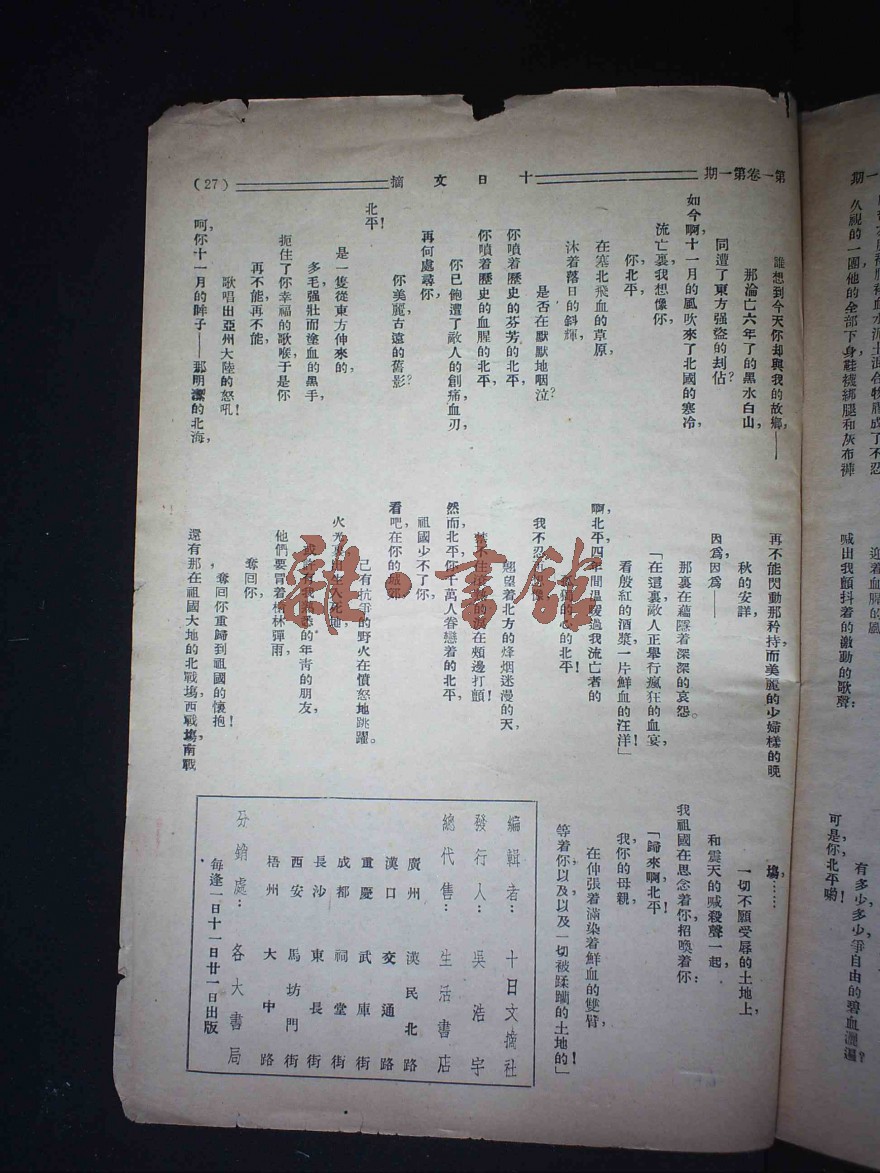 第一卷第一期
十日文摘
(27)
誰想到今天你却與我的故鄉，——
那淪亡六年了的黑水白山，
同遭了東方强盜的刦佔？
如今啊，十一月的風吹來了北國的寒冷，
流亡裏我想像你，
你北平，
在塞北飛血的草原，
沐着落日的斜輝，
是否在默默地咽泣？
你噴着歷史的芬芳的北平，
你噴着歷史的血腥的北平，
你已飽遭了敵人的創痛血刃，
再何處尋你，
你美麗，古遠的舊影？
北平！
是一隻從東方伸來的，
多毛强壯而塗血的黑手，
扼住了你幸福的歌喉于是你
再不能，再不能，
歌唱出亞州大陸的怒吼！
呵，你十一月的眸子——那明潔的北海，
再不能閃動那矜持而美麗的少婦樣的晚
秋的安詳，
因爲因爲——
那裏在蘊隱着深深的哀怨。
「在這裏，敵人正舉行瘋狂的血宴，
看殷紅的酒漿，一片鮮血的汪洋！」
啊，北平，四年間温暖過我流亡者的
的心的北平！
我不忍再想像
翹望着北方的烽烟迷漫的天，
在頰邊打顫！
然而北平，你千萬人眷戀着的北平，
祖國少不了你，
看吧在你的
己有抗
的野火在憤怒地跳躍。
火光裏出生入死地，
或許有我
的年靑的朋友，
他們要冒着槍林彈雨，
奪囘你，
奪囘你重歸到祖國的懷抱！
還有那在祖國大地的北戰塲，西戰塲，南戰
塲，……
一切不願受辱的土地上，
和震天的喊殺聲一起，
我祖國在思念着你，招喚着你：
「歸來啊，北平！
我，你的母親，
在伸張着滿染着鮮血的雙臂，
等着你，以及，以及一切被蹂躪的土地的」
編輯者：十日文摘社
發行人：吳浩宇
總代售：生活書店
廣州 漢民北路
漢口 交通路
重慶 武庫街
成都 祠堂街
長沙 東長街
西安 馬坊門街
梧州 大中路
分銷處：各大書局
每逢一日十一日廿一日出版
期一
久視的一團他的全部下身鞋襪綁腿和灰布褲
迎着血腥的風
喊出我顫抖着的激動的歌聲：
可是，你北平喲！
有多少，多少爭自由的碧血灑遍？
雜·書館